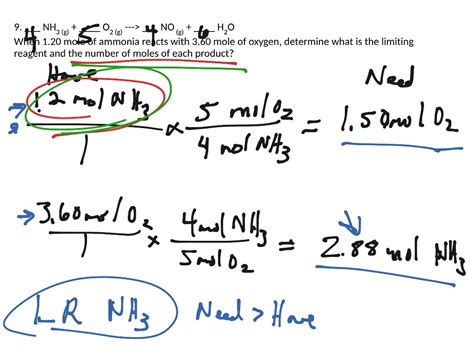 9. 4 NH3 (g) + 5 O2 (g) ---> 4 NO (g) + 6 H2O
When 1.20 mole of ammonia reacts with 3.60 mole of oxygen, determine what is the limiting
reagent and the number of moles of each product?
Have
Need
1.2 mol NH3 / 1 x 5 mol O2 / 4 mol NH3 = 1.50 mol O2
3.60 mol O2 / 1 x 4 mol NH3 / 5 mol O2 = 2.88 mol NH3
LR NH3 Need > Have